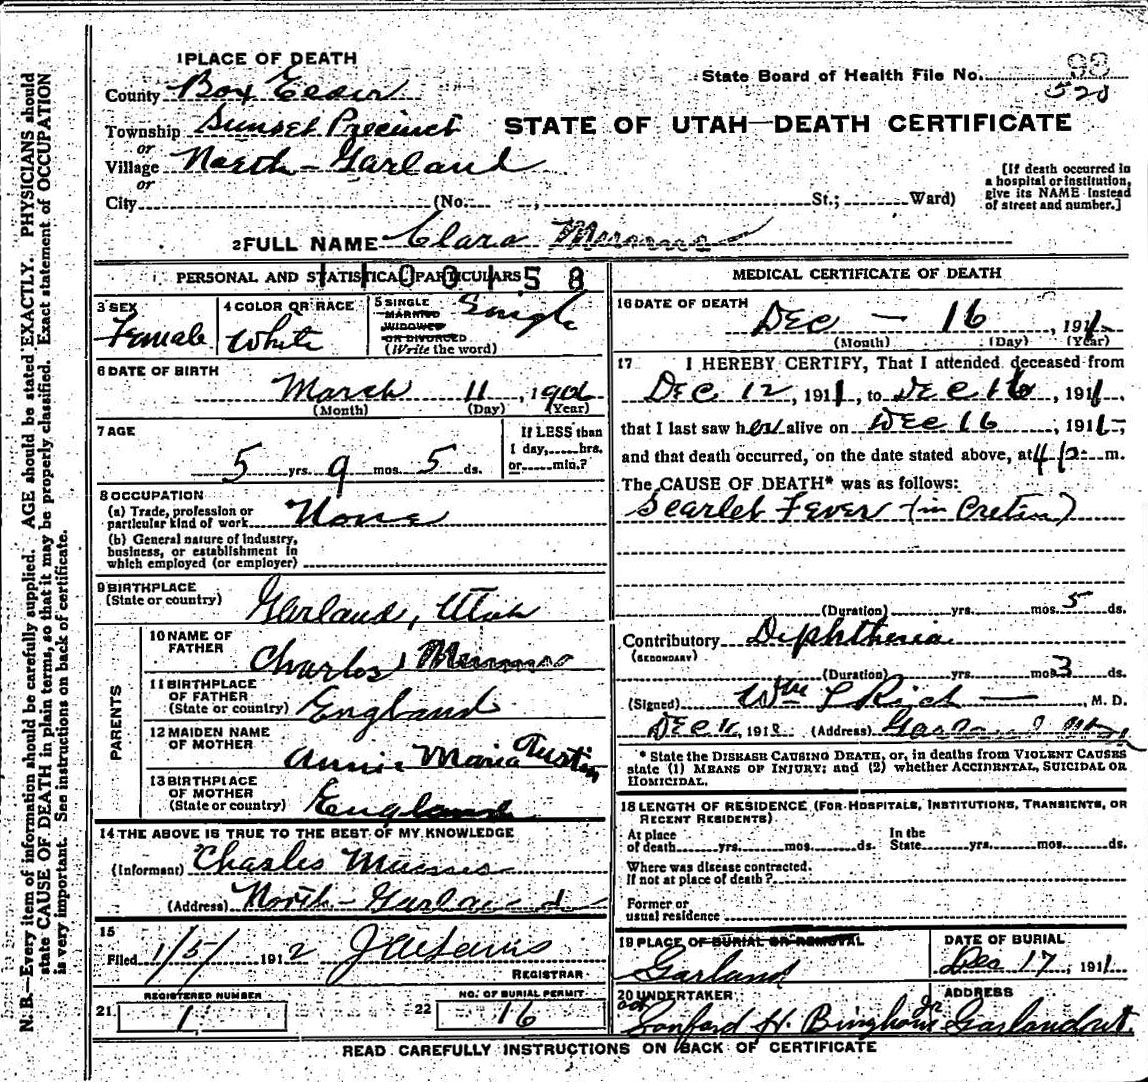 1 PLACE OF DEATH
County Box Elder
State Board of Health File No. 98
528
Township Sunset Precinct
or
STATE OF UTAH—DEATH CERTIFICATE
Village North-Garland
or
City (No. , St.; Ward)
[If death occurred in
a hospital or institution,
give its NAME instead
of street and number.]
2 FULL NAME Clara
PERSONAL AND STATISTICAL PARTICULARS
1100158
3 SEX
Female
4 COLOR OR RACE
White
5 SINGLE
MARRIED
WIDOWED
OR DIVORCED
(Write the word)
Single
6 DATE OF BIRTH
March 11, 190
(Month) (Day) (Year)
7 AGE
5 yrs. 9 mos. 5 ds.
If LESS than
1 day, hrs.
or min.?
8 OCCUPATION
(a) Trade, profession or
particular kind of work None
(b) General nature of industry,
business, or establishment in
which employed (or employer)
9 BIRTHPLACE
(State or country) Garland, Utah
PARENTS
10 NAME OF
FATHER
Charles
11 BIRTHPLACE
OF FATHER
(State or country) England
12 MAIDEN NAME
OF MOTHER
Annie Maria Austin
13 BIRTHPLACE
OF MOTHER
(State or country) England
14 THE ABOVE IS TRUE TO THE BEST OF MY KNOWLEDGE
(Informant) Charles
(Address) North-Garland
15
Filed 1/5/ 1912
REGISTRAR
21 REGISTERED NUMBER
1
22 NO. OF BURIAL PERMIT
16
MEDICAL CERTIFICATE OF DEATH
16 DATE OF DEATH
Dec — 16, 1911
(Month) (Day) (Year)
17 I HEREBY CERTIFY, That I attended deceased from
Dec 12, 1911, to Dec 16, 1911,
that I last saw her alive on Dec 16, 1911,
and that death occurred, on the date stated above, at m.
The CAUSE OF DEATH* was as follows:
Scarlet Fever (in Cretin)
(Duration) yrs. mos. 5 ds.
Contributory Diphtheria
(SECONDARY)
(Duration) yrs. mos. 3 ds.
(Signed) Wm L Rich — M. D.
Dec 16, 191 (Address) Garland
* State the DISEASE CAUSING DEATH, or, in deaths from VIOLENT CAUSES
state (1) MEANS OF INJURY; and (2) whether ACCIDENTAL, SUICIDAL OR
HOMICIDAL.
18 LENGTH OF RESIDENCE (FOR HOSPITALS, INSTITUTIONS, TRANSIENTS, OR
RECENT RESIDENTS)
At place
of death yrs. mos. ds.
In the
State yrs. mos. ds.
Where was disease contracted.
If not at place of death?
Former or
usual residence
19 PLACE OF BURIAL OR REMOVAL
Garland
DATE OF BURIAL
Dec 17, 1911
20 UNDERTAKER
Sanford H. Bingham
ADDRESS
Garland Ut.
READ CAREFULLY INSTRUCTIONS ON BACK OF CERTIFICATE
N. B.—Every item of information should be carefully supplied. AGE should be stated EXACTLY. PHYSICIANS should
state CAUSE OF DEATH in plain terms, so that it may be properly classified. Exact statement of OCCUPATION
is very important. See instructions on back of certificate.